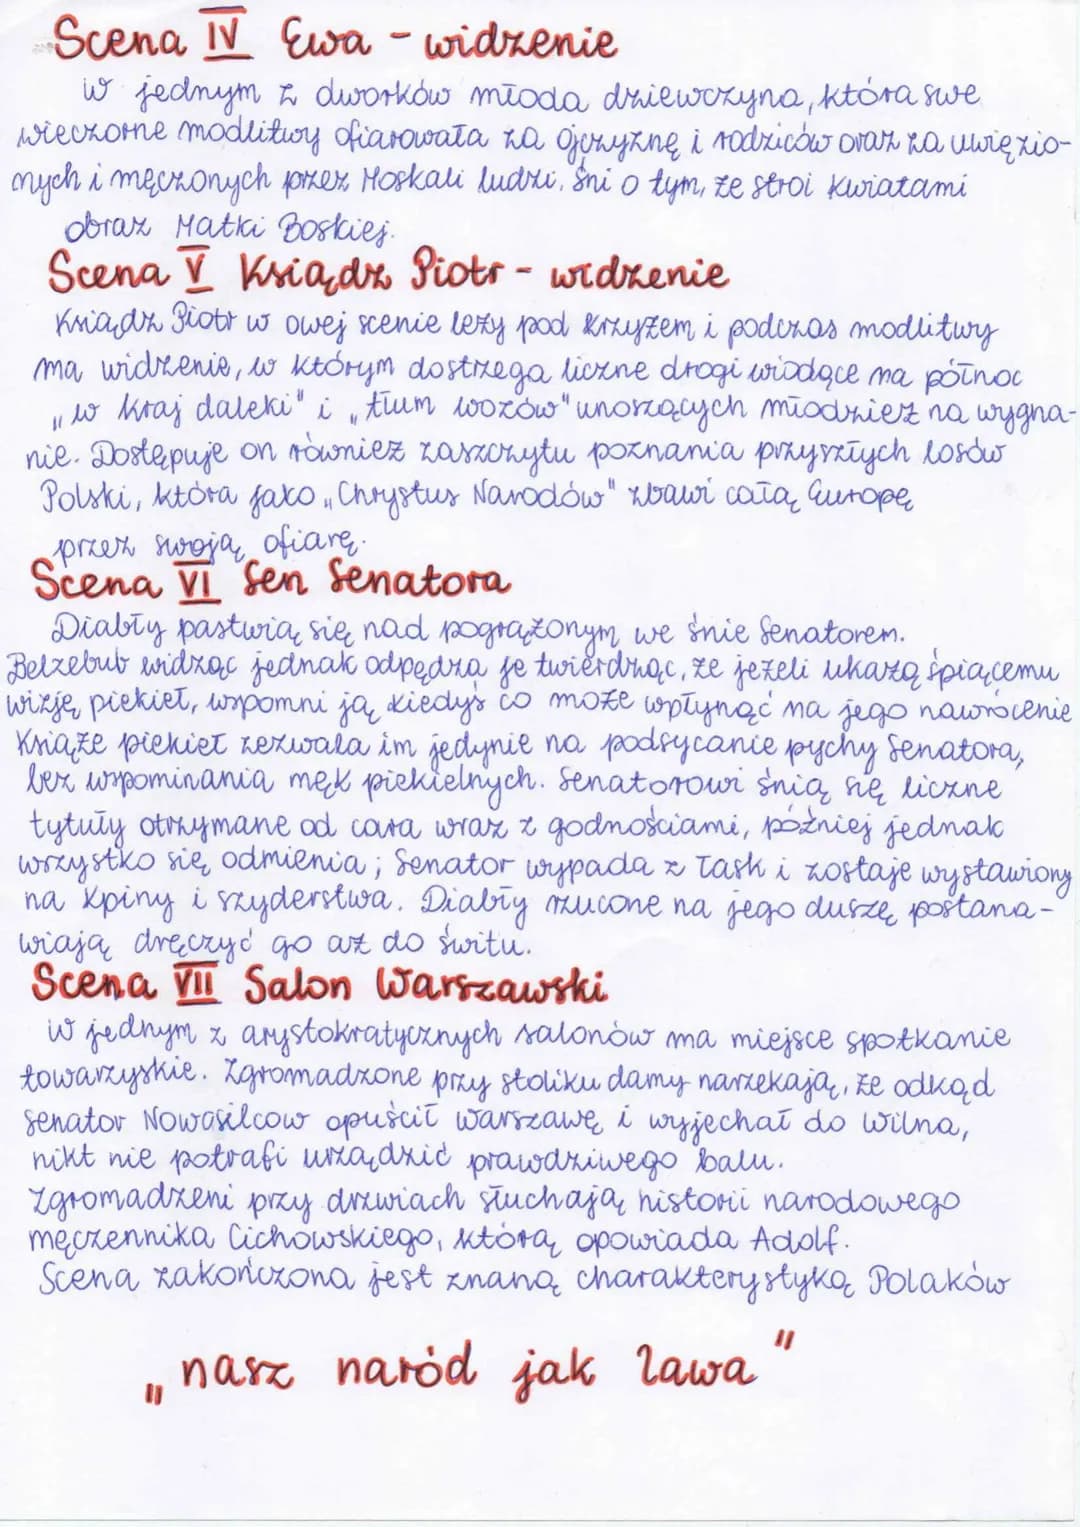 Scena IV Ewa - widzenie
W jednym z dworków młoda dziewczyna, która swe
wieczorne modlitwy ofiarowała za ojczyznę i rodziców oraz za uwięzio-
nych i męczonych przez Moskali ludzi, śni o tym, że stroi kwiatami
obraz Matki Boskiej.
Scena V Ksiądz Piotr - widzenie
Ksiądz Piotr w owej scenie leży pod krzyżem i podczas modlitwy
ma widzenie, w którym dostrzega liczne drogi wiodące na północ
„w kraj daleki" i „tłum wozów" unoszących młodzież na wygna-
nie. Dostępuje on również zaszczytu poznania przyszłych losów
Polski, która jako „Chrystus Narodów" zbawi całą Europę
przez swoją ofiarę.
Scena VI Sen Senatora
Diabły pastwią się nad pogrążonym we śnie Senatorem.
Belzebub widząc jednak odpędza je twierdząc, że jeżeli ukażą śpiącemu
wizję piekieł, wspomni ją kiedyś co może wpłynąć na jego nawrócenie
Książe piekieł zezwala im jedynie na podsycanie pychy Senatora,
bez wspominania męk piekielnych. Senatorowi śnią się liczne
tytuły otrzymane od cara wraz z godnościami, później jednak
wszystko się odmienia; Senator wypada z łask i zostaje wystawiony
na kpiny i szyderstwa. Diabły rzucone na jego duszę postana-
wiają dręczyć go aż do świtu.
Scena VII Salon Warszawski
W jednym z arystokratycznych salonów ma miejsce spotkanie
towarzyskie. Zgromadzone przy stoliku damy narzekają, że odkąd
senator Nowosilcow opuścił Warszawę i wyjechał do Wilna,
nikt nie potrafi urządzić prawdziwego balu.
Zgromadzeni przy drzwiach słuchają historii narodowego
męczennika Cichowskiego, którą opowiada Adolf.
Scena zakończona jest znaną charakterystyką Polaków
„nasz naród jak lawa"